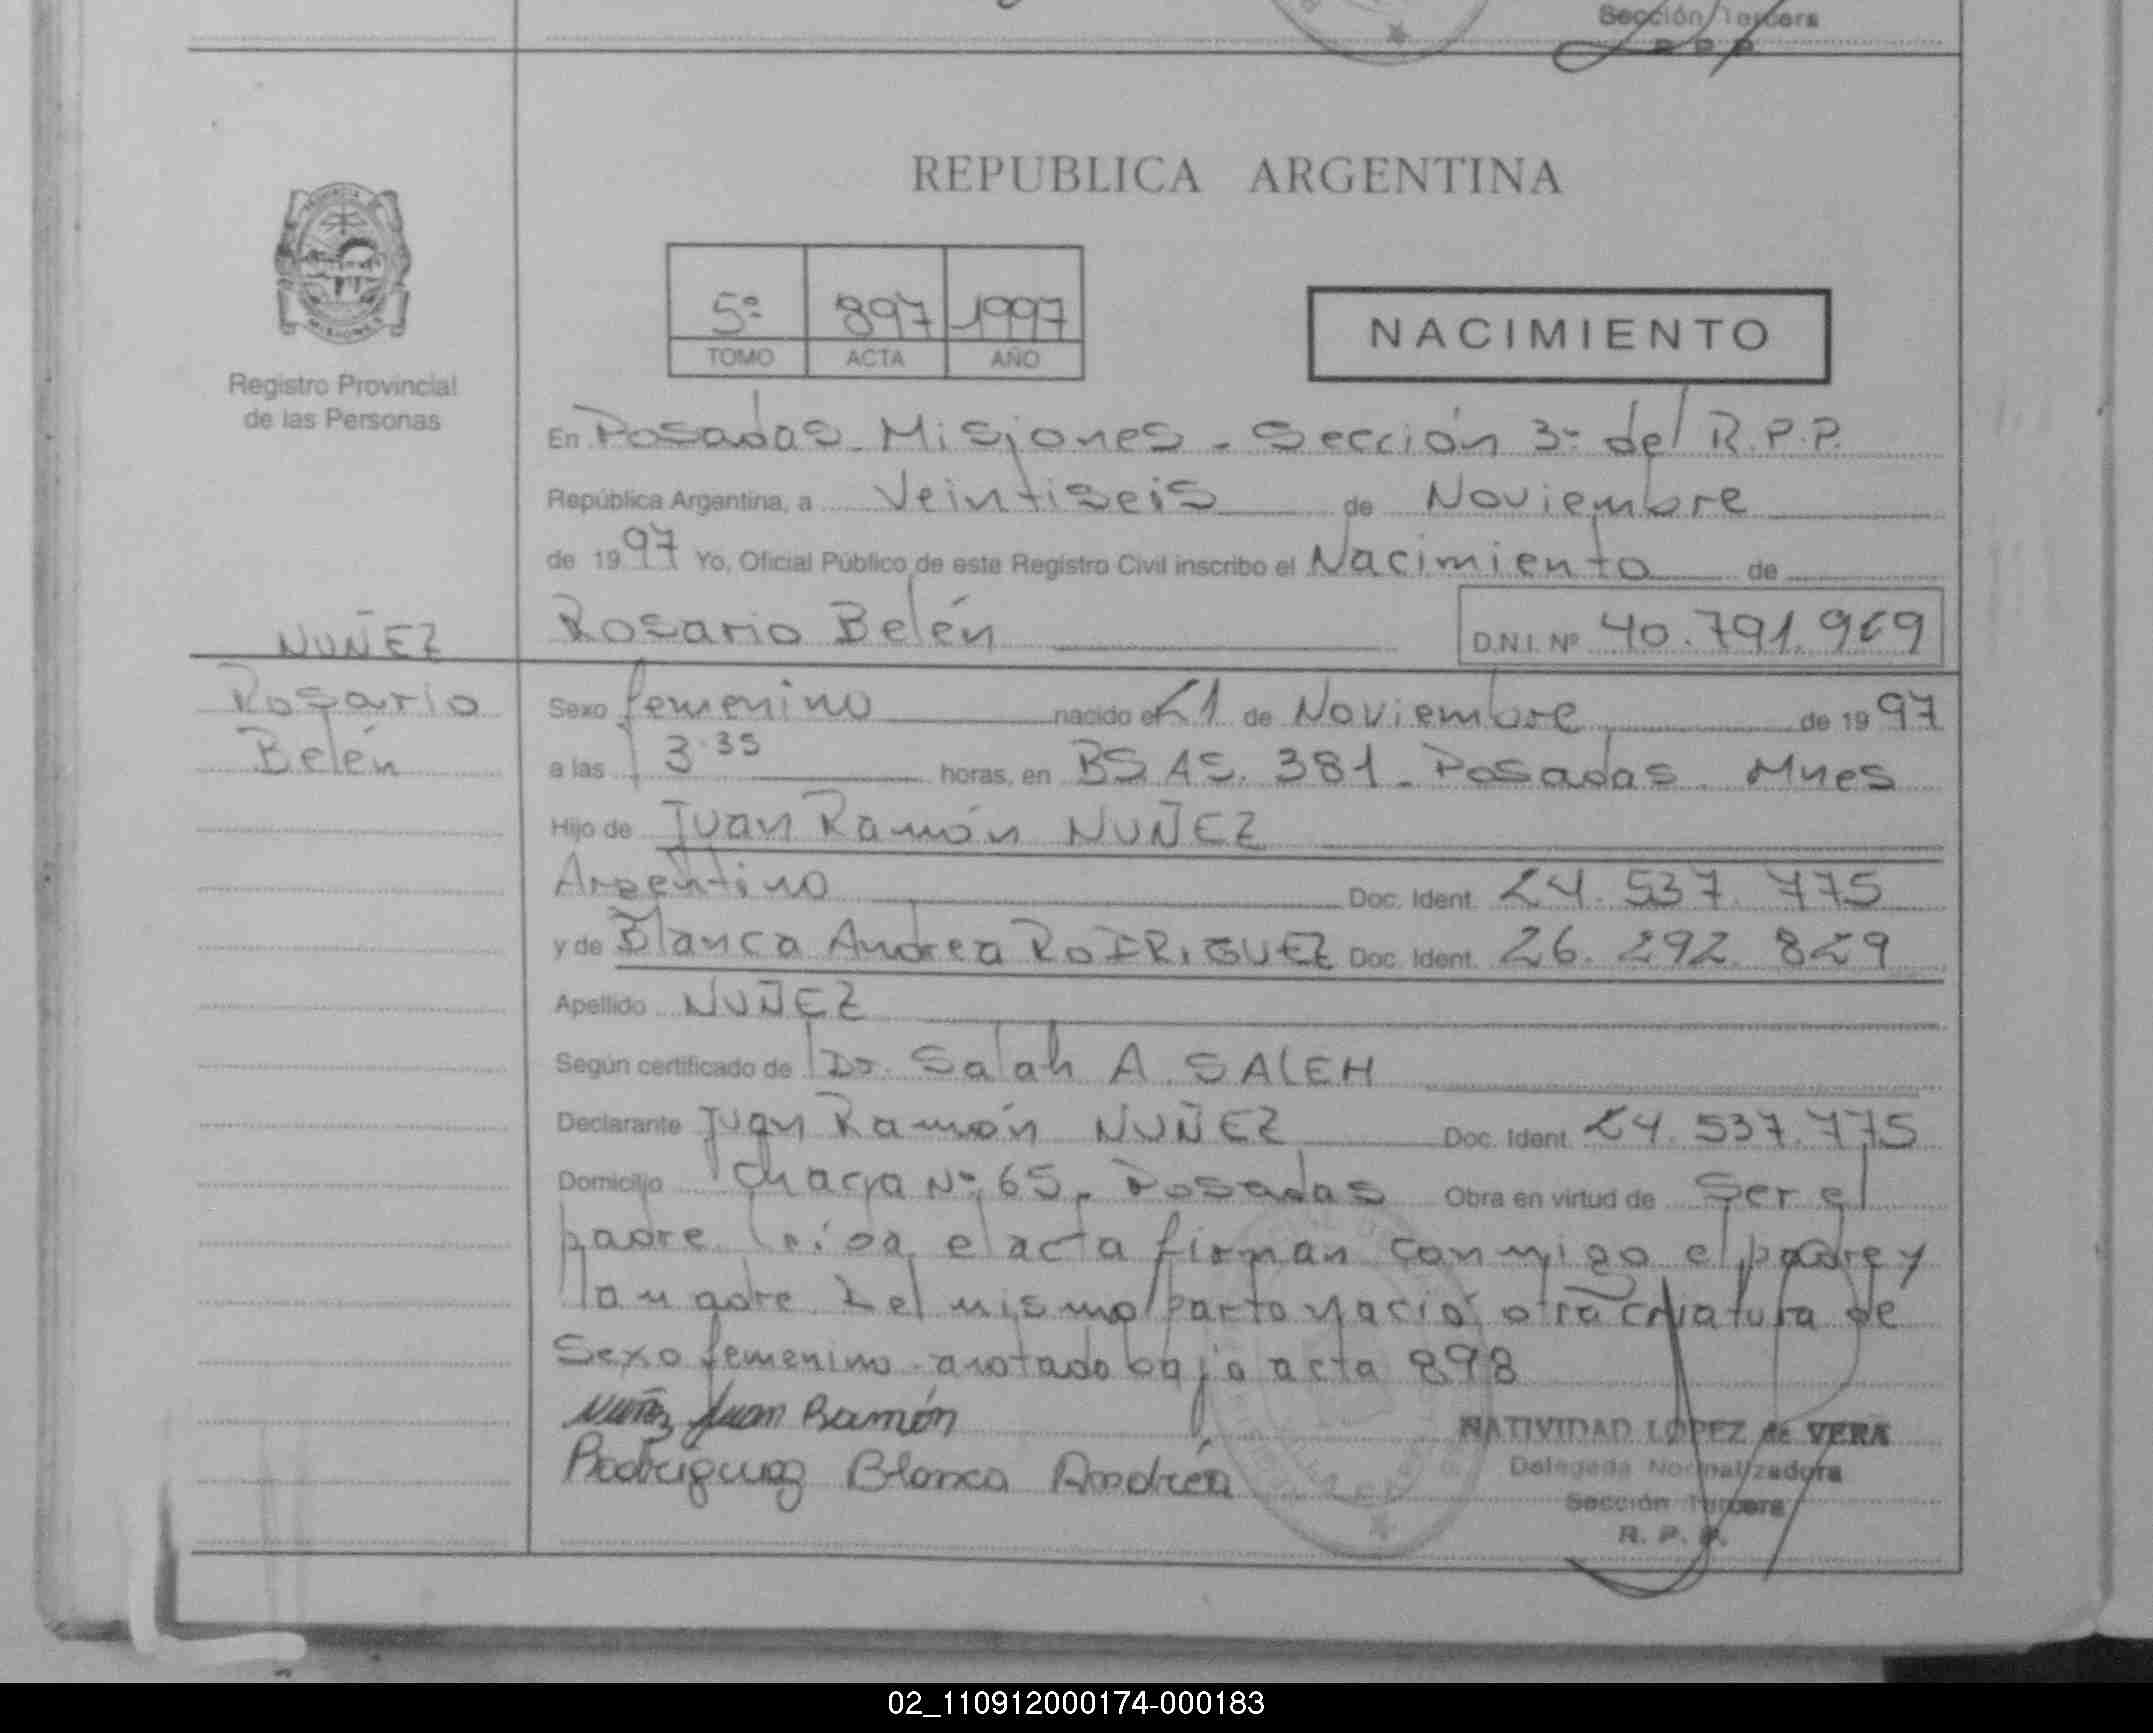 Sección Tercera
R. P. P.
REPUBLICA ARGENTINA
5º 897 1997
TOMO ACTA AÑO
NACIMIENTO
Registro Provincial
de las Personas
En Posadas - Misiones - Sección 3º del R.P.P.
República Argentina, a Veintiseis de Noviembre
de 1997 Yo, Oficial Público de este Registro Civil inscribo el Nacimiento de
NUÑEZ
Rosario Belén D.N.I. Nº 40.791.969
Rosario
Belén
Sexo femenino nacido el 21 de Noviembre de 1997
a las 3.35 horas, en BS AS. 381 - Posadas - Mnes
Hijo de Juan Ramón NUÑEZ
Argentino Doc. Ident. 24.537.775
y de Blanca Andrea RODRIGUEZ Doc. Ident. 26.292.829
Apellido NUÑEZ
Según certificado de Dr. Salah A SALEH
Declarante Juan Ramón NUÑEZ Doc. Ident. 24.537.775
Domicilio Chacra Nº 65 - Posadas Obra en virtud de Ser el
padre Leída el acta firman conmigo el padre y
la madre Del mismo parto nació otra criatura de
Sexo femenino anotado bajo acta 898
Nuñez Juan Ramón
Rodriguez Blanca Andréa
NATIVIDAD LOPEZ de VERA
Delegada Normalizadora
Sección Tercera
R. P. P.
02_110912000174-000183